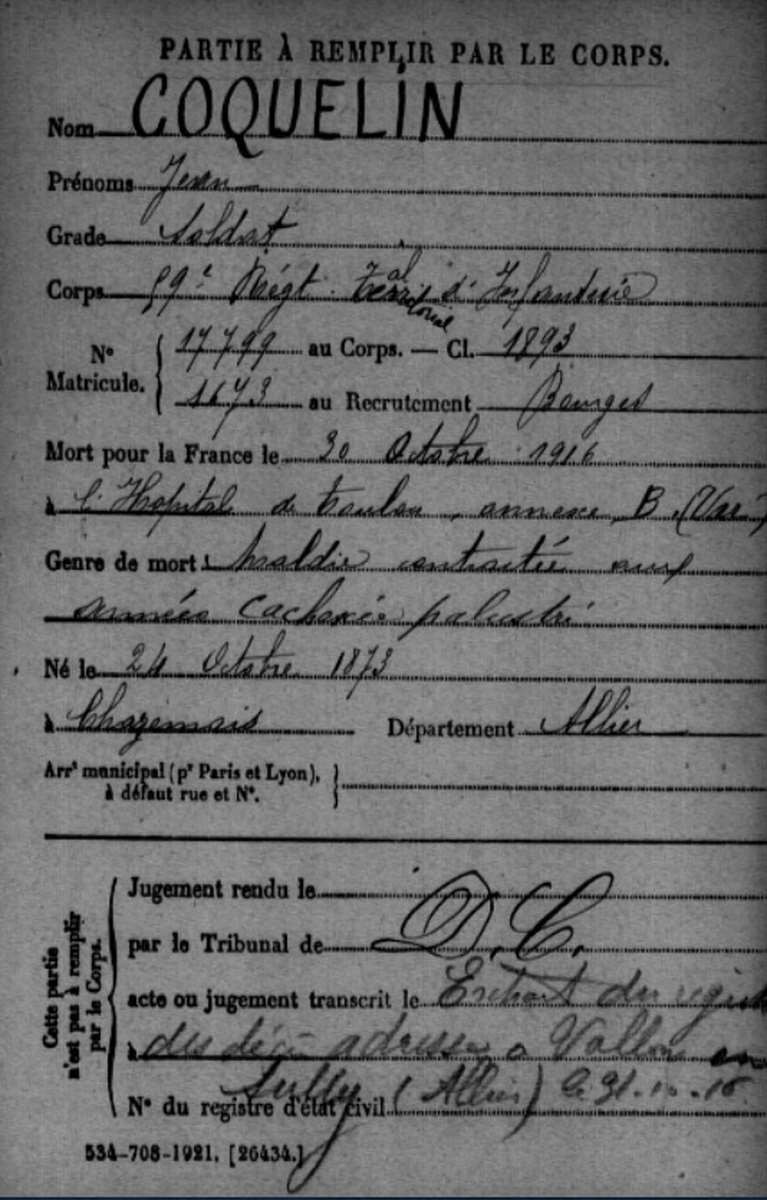 PARTIE À REMPLIR PAR LE CORPS.
Nom COQUELIN
Prénoms Jean
Grade Soldat
Corps 59e Régt territorial d'Infanterie
No Matricule. 17799 au Corps. — Cl. 1893
1673 au Recrutement Bourges
Mort pour la France le 30 Octobre 1916
à l'Hopital de Toulon, annexe B (Var)
Genre de mort Maladie contractée aux
armées cachexie palustre
Né le 24 Octobre 1873
à Chazemais Département Allier
Arrt municipal (pr Paris et Lyon), à défaut rue et No.
Cette partie n'est pas à remplir par le Corps.
Jugement rendu le
par le Tribunal de D.C.
acte ou jugement transcrit le Extrait du regist
à des décès adressé a Vallon en
Sully (Allier) le 31-10-16
No du registre d'état civil
534-708-1921. [26434.]